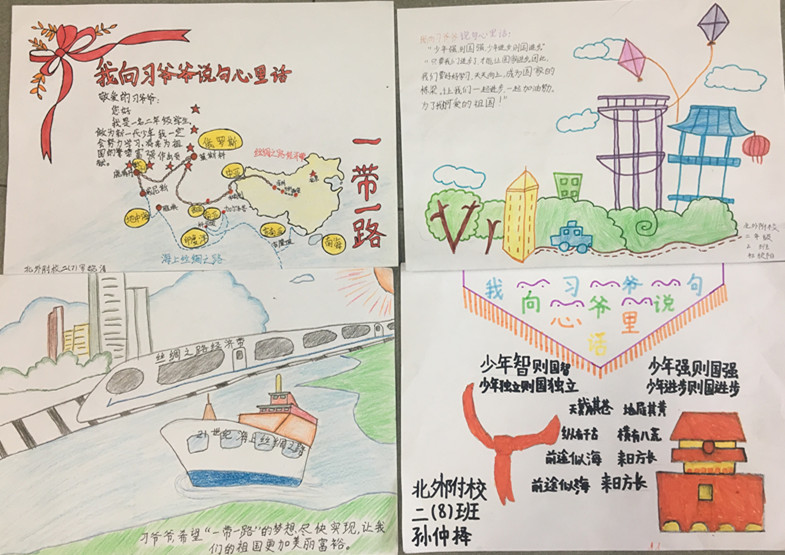 我向习爷爷说句心里话
敬爱的习爷爷:
您好
我是一名二年级学生,
做为新一代少年我一定
会努力学习,将来为祖
国的繁荣富强作出贡
献。
一带一路
俄罗斯
莫斯科
丝绸之路经济带
地中海
印度洋
南海
海上丝绸之路
我向习爷爷说句心里话:
“少年强则国强,少年进步则国进步”
只有我们进步了才能让国家进步,因此,
我们要好好学习,天天向上,成为国家的
栋梁,让我们一起进步,一起加油吧,
为了我可爱的祖国!”
北外附校
二年级
丝绸之路经济带
21世纪海上丝绸之路
习爷爷希望“一带一路”的梦想尽快实现,让我
们的祖国更加美丽富裕。
我向习爷爷说句
心里话
少年智则国智
少年独立则国独立
少年强则国强
少年进步则国进步
天戴其苍 地履其黄
纵有千古 横有八荒
前途似海 来日方长
前途似海 来日方长
北外附校
二(8)班
孙仲择